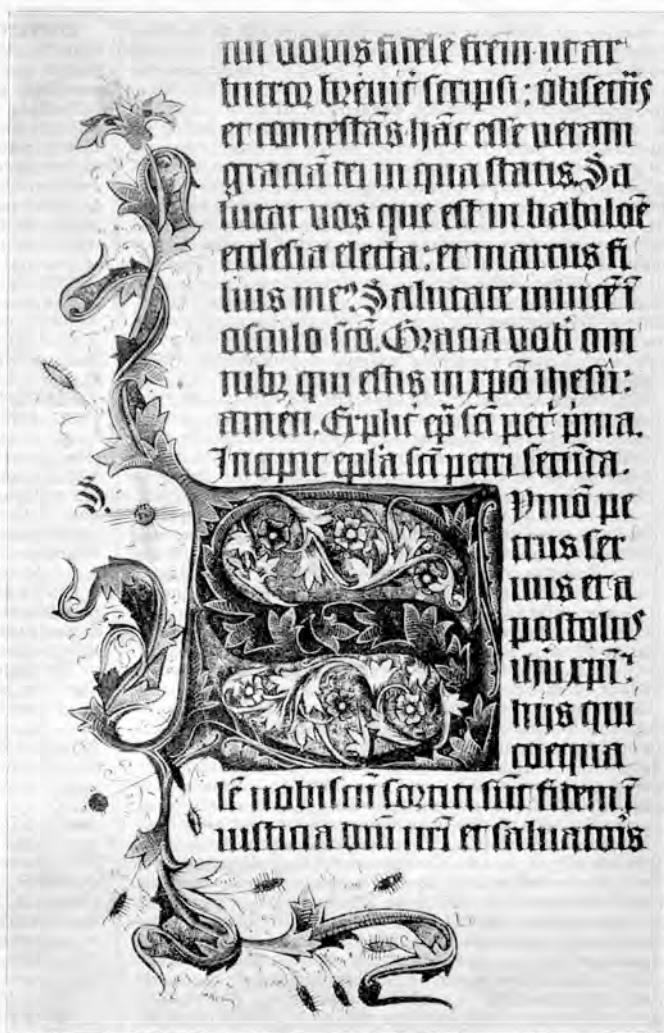 nū vobis fidelē frēm ut ar
bitror brevit̄ scripsi: obsecrās
et contestās hāc esse veram
graciā dei in qua statis. Sa
lutat vos que est in babilōe
ecclesia electa: et marcus fi
lius me⁹. Salutate invicē ī
osculo sc̄o. Gracia vob̄ om
nibꝫ qui estis in xp̄o ihesu:
amen. Explic̄ ep̄ sc̄i pet̄ p̄ma.
Incipit ep̄la sc̄i petri secūda.
S.
Symō pe
trus ser
vus et a
postolus
ihu xp̄i:
hijs qui
coequa
lē nobiscū sortiti sūt fidem ī
iusticia dn̄i nr̄i et salvatoris